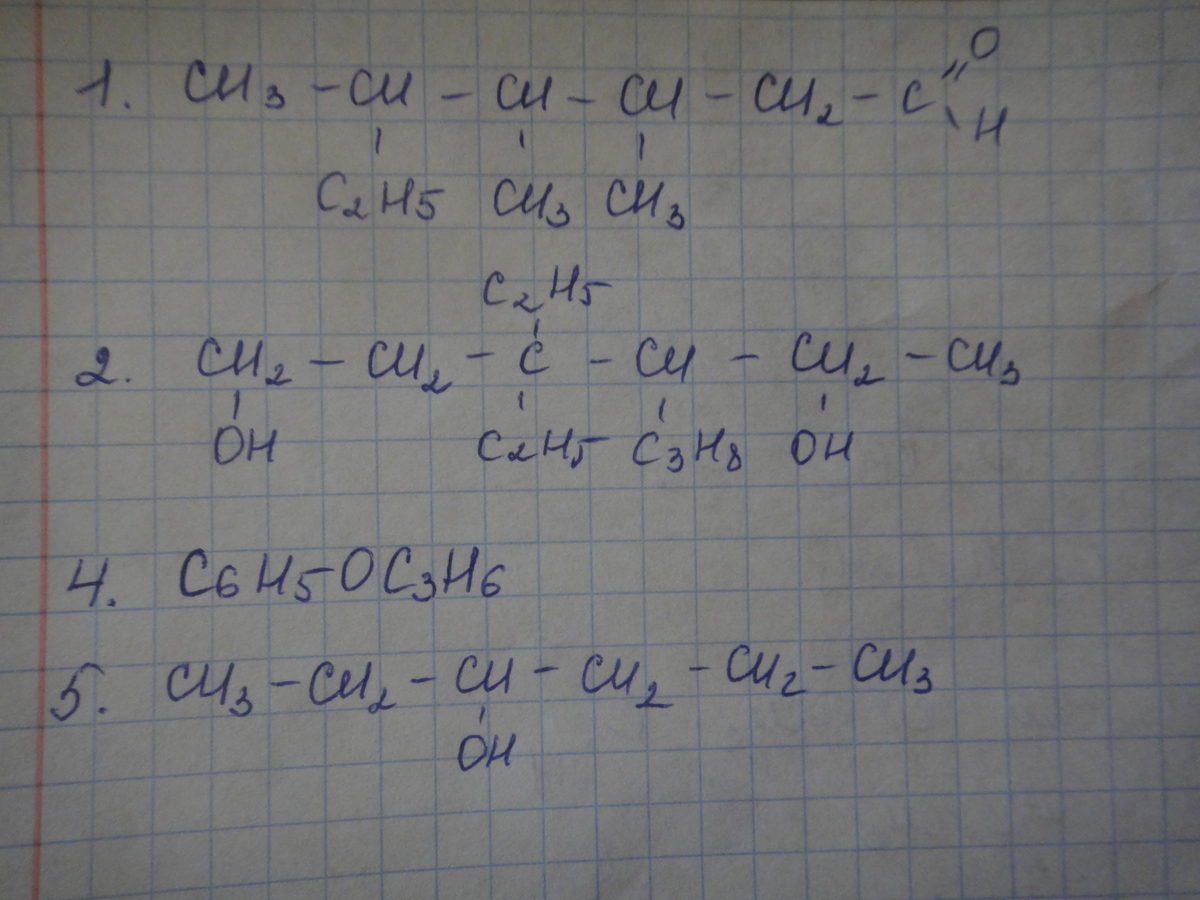 O
1. CH3 - CH - CH - CH - CH2 - C
H
C2H5 CH3 CH3
C2H5
2. CH2 - CH2 - C - CH - CH2 - CH3
OH C2H5 C3H8 OH
4. C6H5OC3H6
5. CH3 - CH2 - CH - CH2 - CH2 - CH3
OH